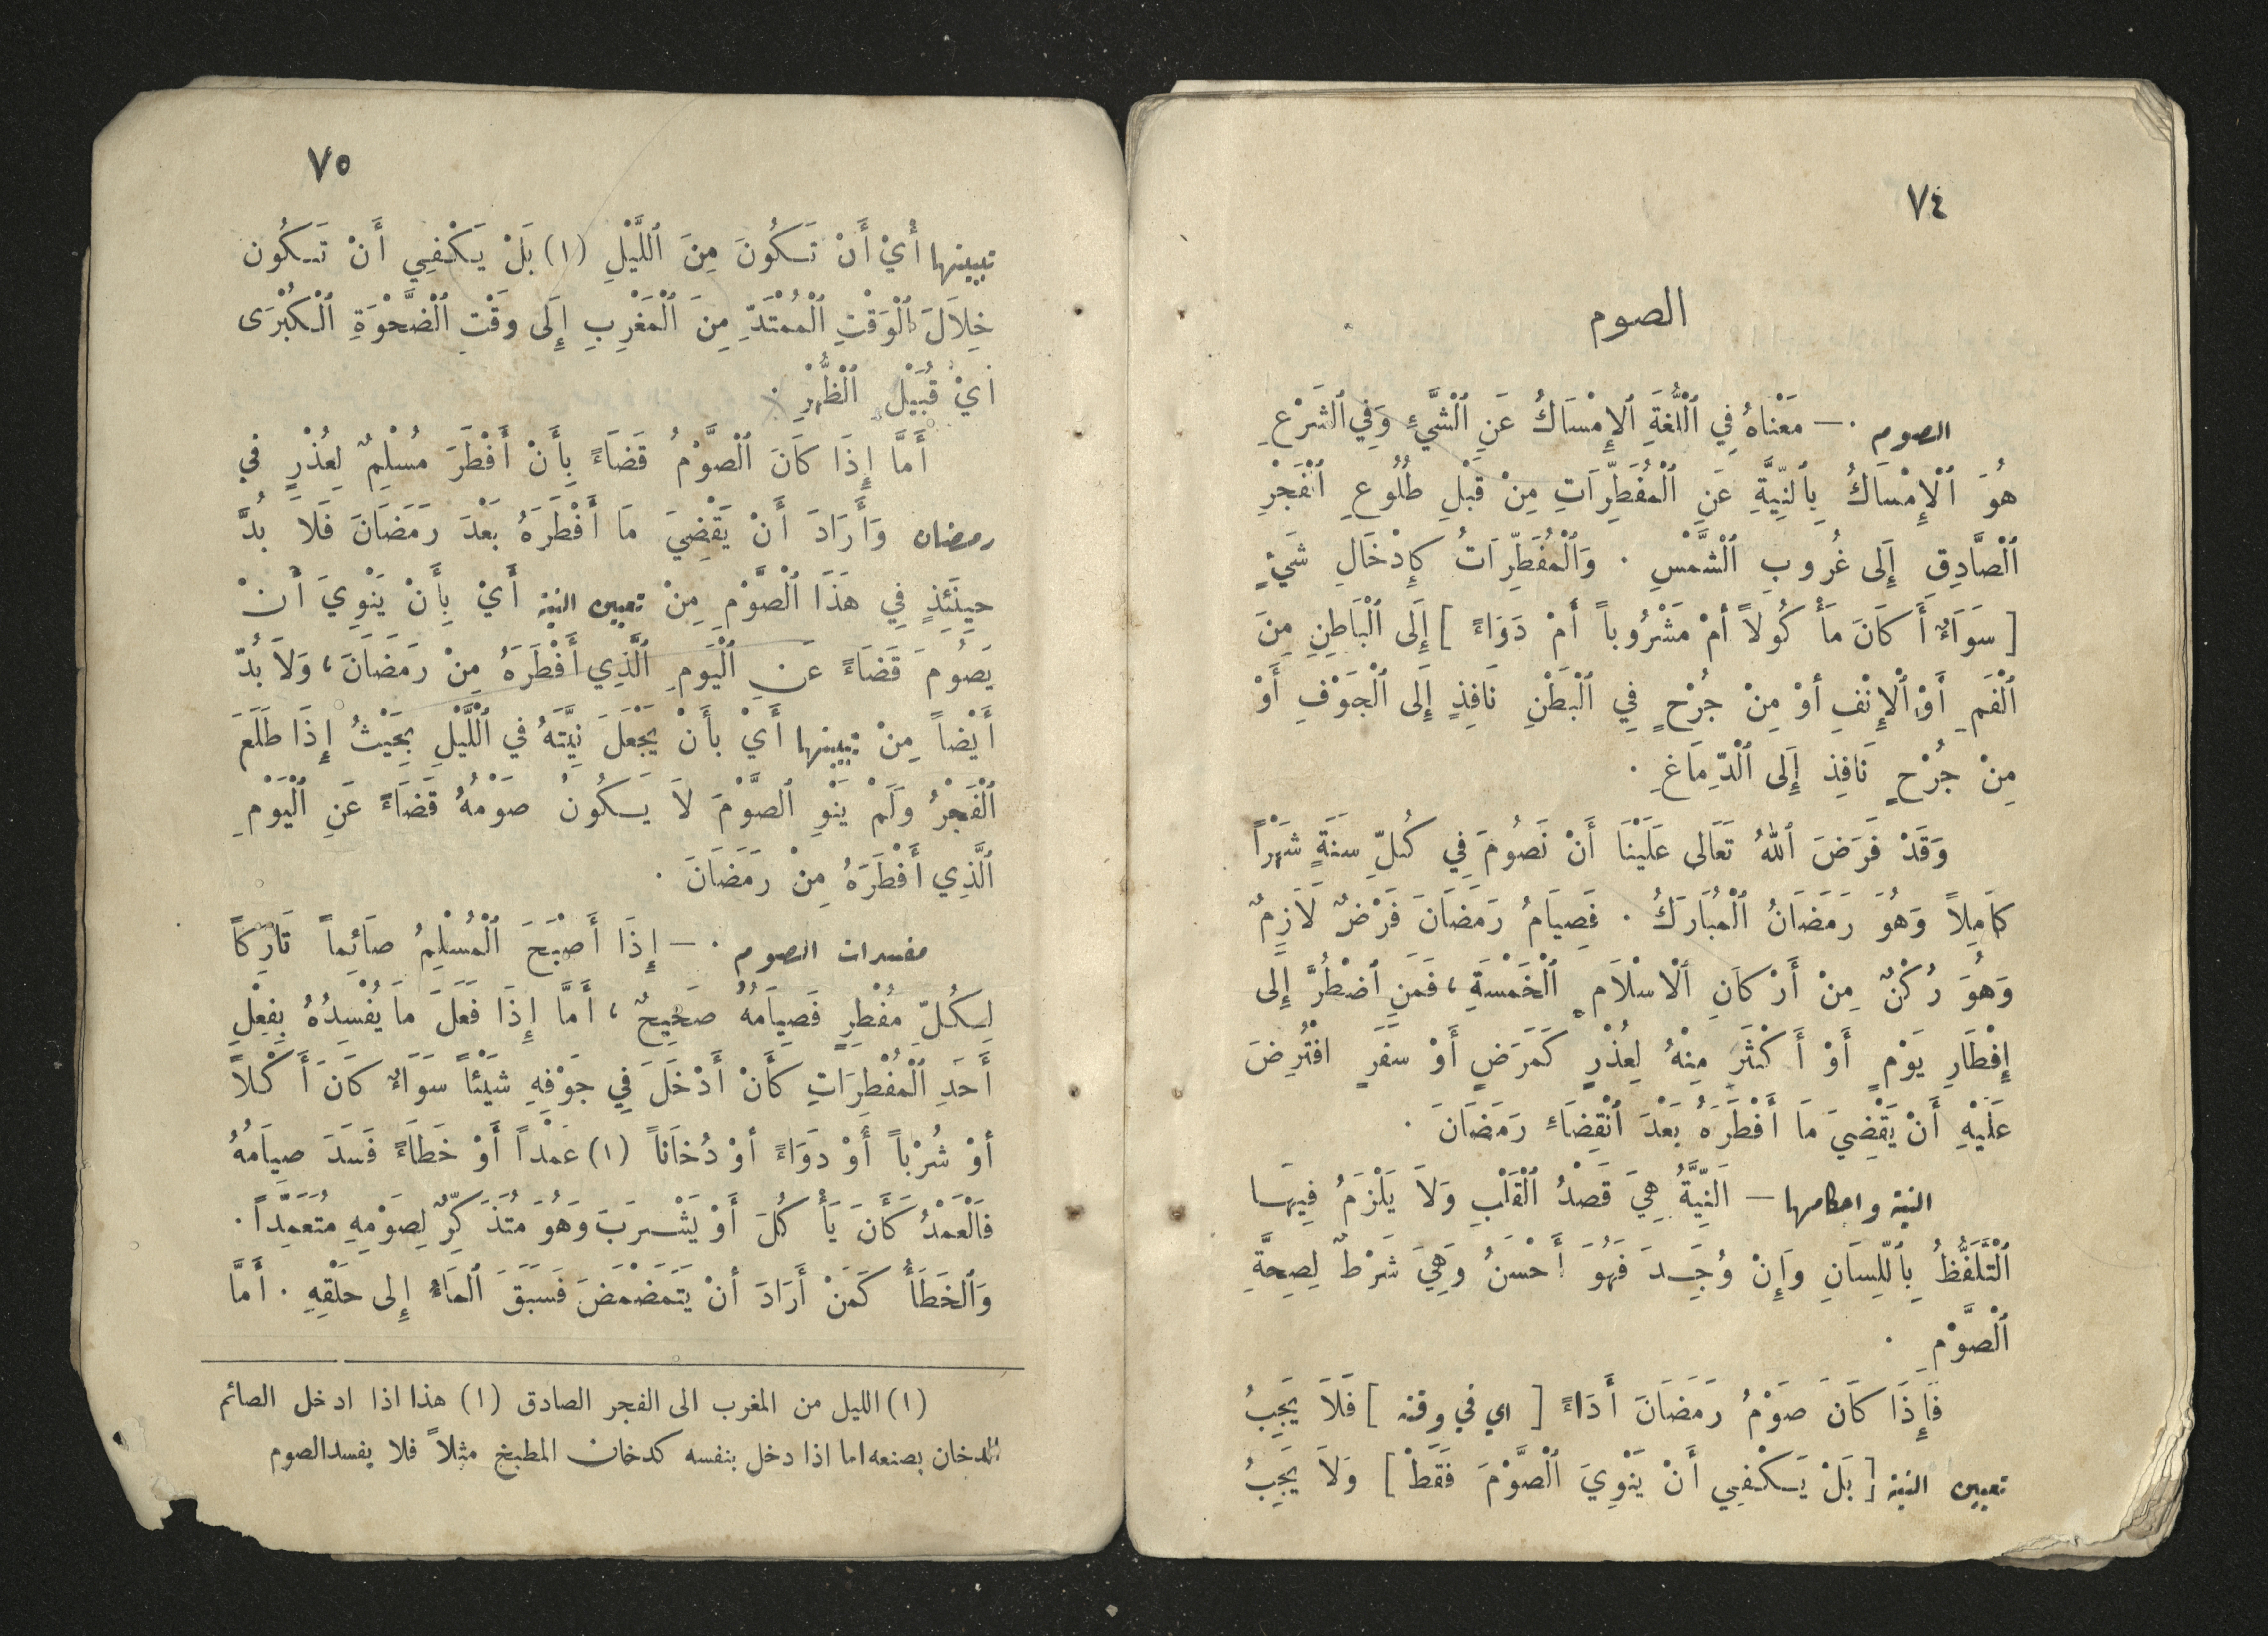 ٧٤
الصوم
الصوم . — مَعْنَاهُ فِي ٱلْلُّغَةِ ٱلإِمْسَاكُ عَنِ ٱلْشَّيْءِ وَفِي ٱلشَّرْعِ
هُوَ ٱلْإِمْسَاكُ بِٱلنِّيَّةِ عَنِ ٱلْمُفَطِّرَاتِ مِنْ قَبْلِ طُلُوعِ ٱلْفَجْرِ
ٱلْصَّادِقِ إِلَى غُرُوبِ ٱلْشَّمْسِ . وَٱلْمُفَطِّرَاتُ كَإِدْخَالِ شَيْءٍ
[ سَوَاءٌ أَ كَانَ مَأْ كُولاً أَمْ مَشْرُوباً أَمْ دَوَاءً ] إِلَى ٱلْبَاطِنِ مِنَ
ٱلْفَمِ أَوْ ٱلْإِنْفِ أَوْ مِنْ جُرْحٍ فِي ٱلْبَطْنِ نَافِذٍ إِلَى ٱلْجَوْفِ أَوْ
مِنْ جُرْحٍ نَافِذ إِلَى ٱلْدِّمَاغِ .
وَقَدْ فَرَضَ ٱللهُ تَعَالَى عَلَيْنَا أَنْ نَصُومَ فِي كُلِّ سَنَةٍ شَهْراً
كَامِلاً وَهُوَ رَمَضَانُ ٱلْمُبَارَكُ . فَصِيَامُ رَمَضَانَ فَرْضٌ لَازِمٌ
وَهُوَ رُكْنٌ مِنْ أَرْكَانِ ٱلْاسْلَامِ ٱلْخَمْسَةِ ، فَمَنِ ٱضْطُرَّ إِلَى
إِفْطَارِ يَوْمٍ أَوْ أَ كْثَرَ مِنْهُ لِعُذْرٍ كَمَرَضٍ أَوْ سَفَرٍ افْتُرِضَ
عَلَيْهِ أَنْ يَقْضِيَ مَا أَفْطَرَهُ بَعْدَ ٱنْقِضَاءِ رَمَضَانَ .
النية واحكامها — اَلنِّيَّةُ هِيَ قَصْدُ ٱلْقَلْبِ وَلاَ يَلْزَمُ فِيهَا
ٱلْتَّلَفُّظُ بِٱللِّسَانِ وَإِنْ وُجِدَ فَهُوَ أَحْسَنُ وَهِيَ شَرْطٌ لِصِحَّةِ
ٱلْصَّوْمِ .
فَإِذَا كَانَ صَوْمُ رَمَضَانَ أَدَاءً [ اي في وقته ] فَلاَ يَجِبُ
تعيين النية [ بَلْ يَكْفِي أَنْ يَنْوِيَ ٱلْصَّوْمَ فَقَطْ ] وَلاَ يَجِبُ
٧٥
تبييتها أَيْ أَنْ تَكُونَ مِنَ ٱللَّيْلِ (١) بَلْ يَكْفِي أَنْ تَكُونَ
خِلاَلَ ٱلْوَقْتِ ٱلْمُمْتَدِّ مِنَ ٱلْمَغْرِبِ إِلَى وَقْتِ ٱلْضَّحْوَةِ ٱلْكُبْرَى
أَيْ قُبَيْلَ ٱلْظُّهْرِ .
أَمَّا إِذَا كَانَ ٱلْصَّوْمُ قَضَاءً بِأَنْ أَفْطَرَ مُسْلِمٌ لِعُذْرٍ في
رمضان وَأَرَادَ أَنْ يَقْضِيَ مَا أَفْطَرَهُ بَعْدَ رَمَضَانَ فَلاَ بُدَّ
حِينَئِذٍ فِي هَذَا ٱلْصَّوْمِ مِنْ تعيين النية أَيْ بِأَنْ يَنْوِيَ أَنْ
يَصُومَ قَضَاءً عَنِ ٱلْيَومِ ٱلَّذِي أَفْطَرَهُ مِنْ رَمَضَانَ ، وَلاَ بُدّ
أَيْضاً مِنْ تبييتها أَيْ بِأَنْ يَجْعَلَ نِيَّتَهُ في ٱلْلَّيْلِ بِحَيْثُ إِذَا طَلَعَ
ٱلْفَجْرُ وَلَمْ يَنْوِ ٱلصَّوْمَ لاَ يَكُونُ صَوْمُهُ قَضَاءً عَنِ ٱلْيَوْمِ
ٱلَّذِي أَفْطَرَهُ مِنْ رَمَضَانَ .
مفسدات الصوم . — إِذَا أَصْبَحَ ٱلْمُسْلِمُ صَائِماً تَارِكاً
لِكُلِّ مُفْطِرٍ فَصِيَامُهُ صَحِيحٌ ، أَمَّا إِذَا فَعَلَ مَا يُفْسِدُهُ بِفِعْلِ
أَحَدِ ٱلْمُفْطِرَاتِ كَأَنْ أَدْخَلَ فِي جَوْفِهِ شَيْئاً سَوَاءٌ كَانَ أَ كْلاً
أَوْ شُرْباً أَوْ دَوَاءً أَوْ دُخَاناً (١) عَمْداً أَوْ خَطَاءً فَسَدَ صِيَامُهُ
فَٱلْعَمْدُ كَأَنَ يَأْ كُلَ أَوْ يَشْرَبَ وَهُوَ مُتَذَ كِّرٌ لِصَوْمِهِ مُتَعَمِّداً .
وَٱلْخَطَأُ كَمَنْ أَرَادَ أَنْ يَتَمَضْمَضَ فَسَبَقَ ٱلمَاءُ إِلى حَلْقِهِ . أَمَّا
(١) الليل من المغرب الى الفجر الصادق (١) هذا اذا ادخل الصائم
الدخان بصنعه اما اذا دخل بنفسه كدخان المطبخ مثلاً فلا يفسد الصوم